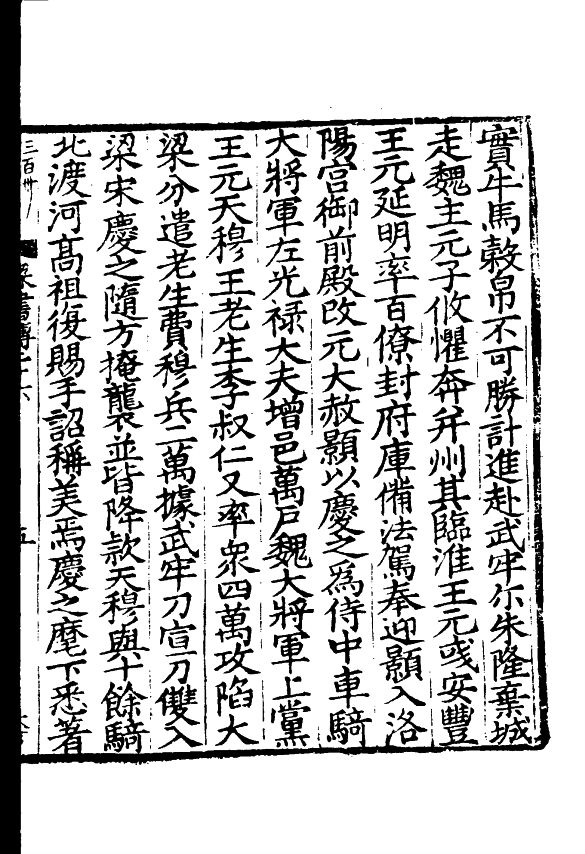 實牛馬榖帛不可勝計進赴武牢尒朱隆棄城
走魏主元子攸懼奔并州其臨淮王元彧安豐
王元延明率百僚封府庫備法駕奉迎顥入洛
陽宫御前殿改元大赦顥以慶之爲侍中車騎
大將軍左光禄大夫增邑萬戸魏大將軍上黨
王元天穆王老生李叔仁又率衆四萬攻陷大
梁分遣老生費穆兵二萬據武牢刀宣刀雙入
梁宋慶之隨方掩襲並皆降款天穆與十餘騎
北渡河髙祖復賜手詔稱美焉慶之麾下悉著
三百卅
梁書傳二十六
五